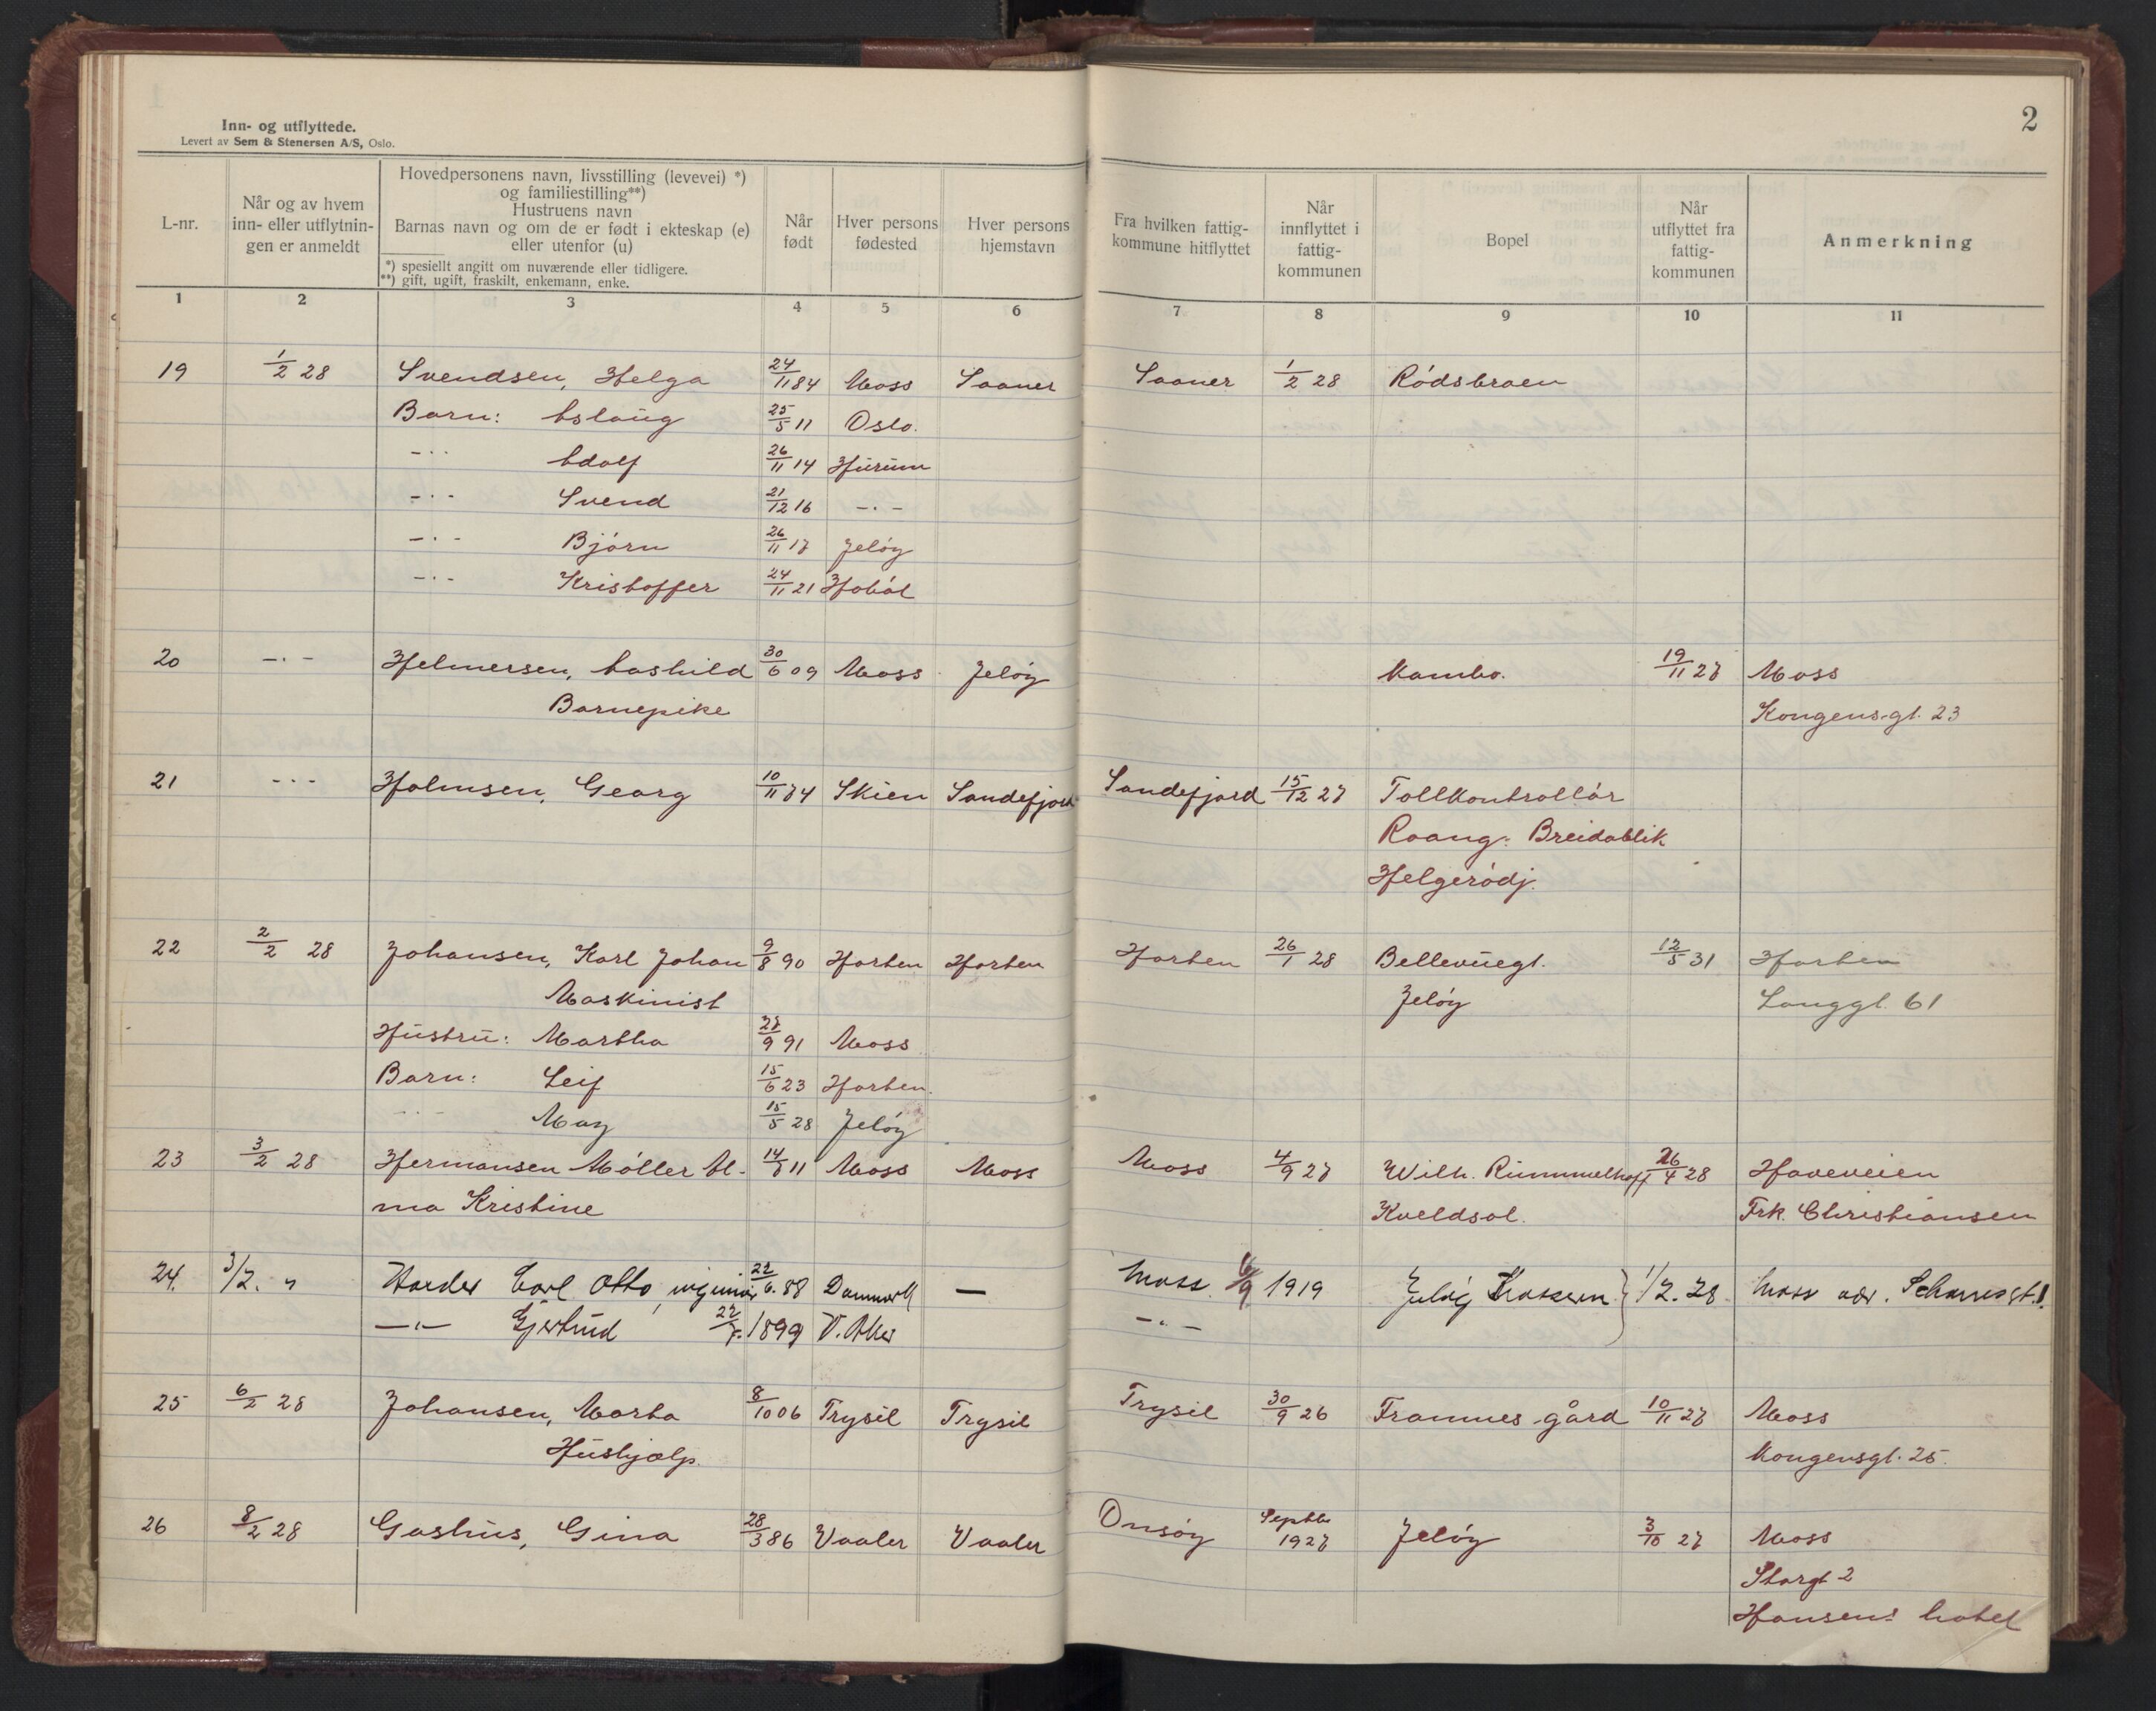 2
Inn- og utflyttede.
Levert av Sem & Stenersen A/S, Oslo.
L-nr.
Når og av hvem inn- eller utflytnin-gen er anmeldt
Hovedpersonens navn, livsstilling (levevei) *) og familiestilling**)
Hustruens navn
Barnas navn og om de er født i ekteskap (e) eller utenfor (u)
*) spesiellt angitt om nuværende eller tidligere.
**) gift, ugift, fraskilt, enkemann, enke.
Når født
Hver persons fødested
Hver persons hjemstavn
Fra hvilken fattig-kommune hitflyttet
Når innflyttet i fattig-kommunen
Bopel
Når utflyttet fra fattig-kommunen
Anmerkning
1 2 3 4 5 6 7 8 9 10 11
19 1/2 28 Svendsen, Helga 24/11 84 Moss Saaner Saaner 1/2 28 Rødsbraen
Barn: Aslaug 25/5 11 Oslo.
-"- Adolf 26/11 14 Hurum
-"- Svend 21/12 16 -"-
-"- Bjørn 26/11 17 Jeløy
-"- Kristoffer 24/11 21 Hobøl
20 -"- Helmersen, Aashild 30/6 09 Moss Jeløy Kambo. 19/11 27 Moss
Barnepike Kongensgt. 23
21 -"- Holmsen, Georg 10/11 74 Skien Sandefjord Sandefjord 15/12 27 Tollkontrollør
Raang. Breidablik
Helgerødj.
22 2/2 28 Johansen, Karl Johan 9/8 90 Horten Horten Horten 26/1 28 Bellevuegt. 12/5 31 Horten
Maskinist Jeløy Langgt. 61
Hustru: Martha 27/9 91 Moss
Barn: Leif 15/6 23 Horten.
-"- May 15/5 28 Jeløy
23 3/2 28 Hermansen Møller Al- 14/7 11 Moss Moss Moss 4/9 27 Wilh. Rummelhoff 26/4 28 Haveveien
ma Kristine Kveldsol. Frk. Christiansen
24. 3/2. " Harder Carl Otto, ingeniør 22/6. 88 Danmark — Moss. 1919 Jeløy 1/2. 28 Moss adr.
-"- Gjertrud 1899 V. Aker -"-
25 6/2 28 Johansen, Marta 8/10 06 Trysil Trysil Trysil 30/9 26 Framnes gård 10/11 27 Moss
Hushjælp. Kongensgt. 25.
26 8/2 28 Gashus, Gina 28/3 86 Vaaler Vaaler Onsøy Septbr 1927 Jeløy 3/10 27 Moss
Storgt 2
Hansens hotel